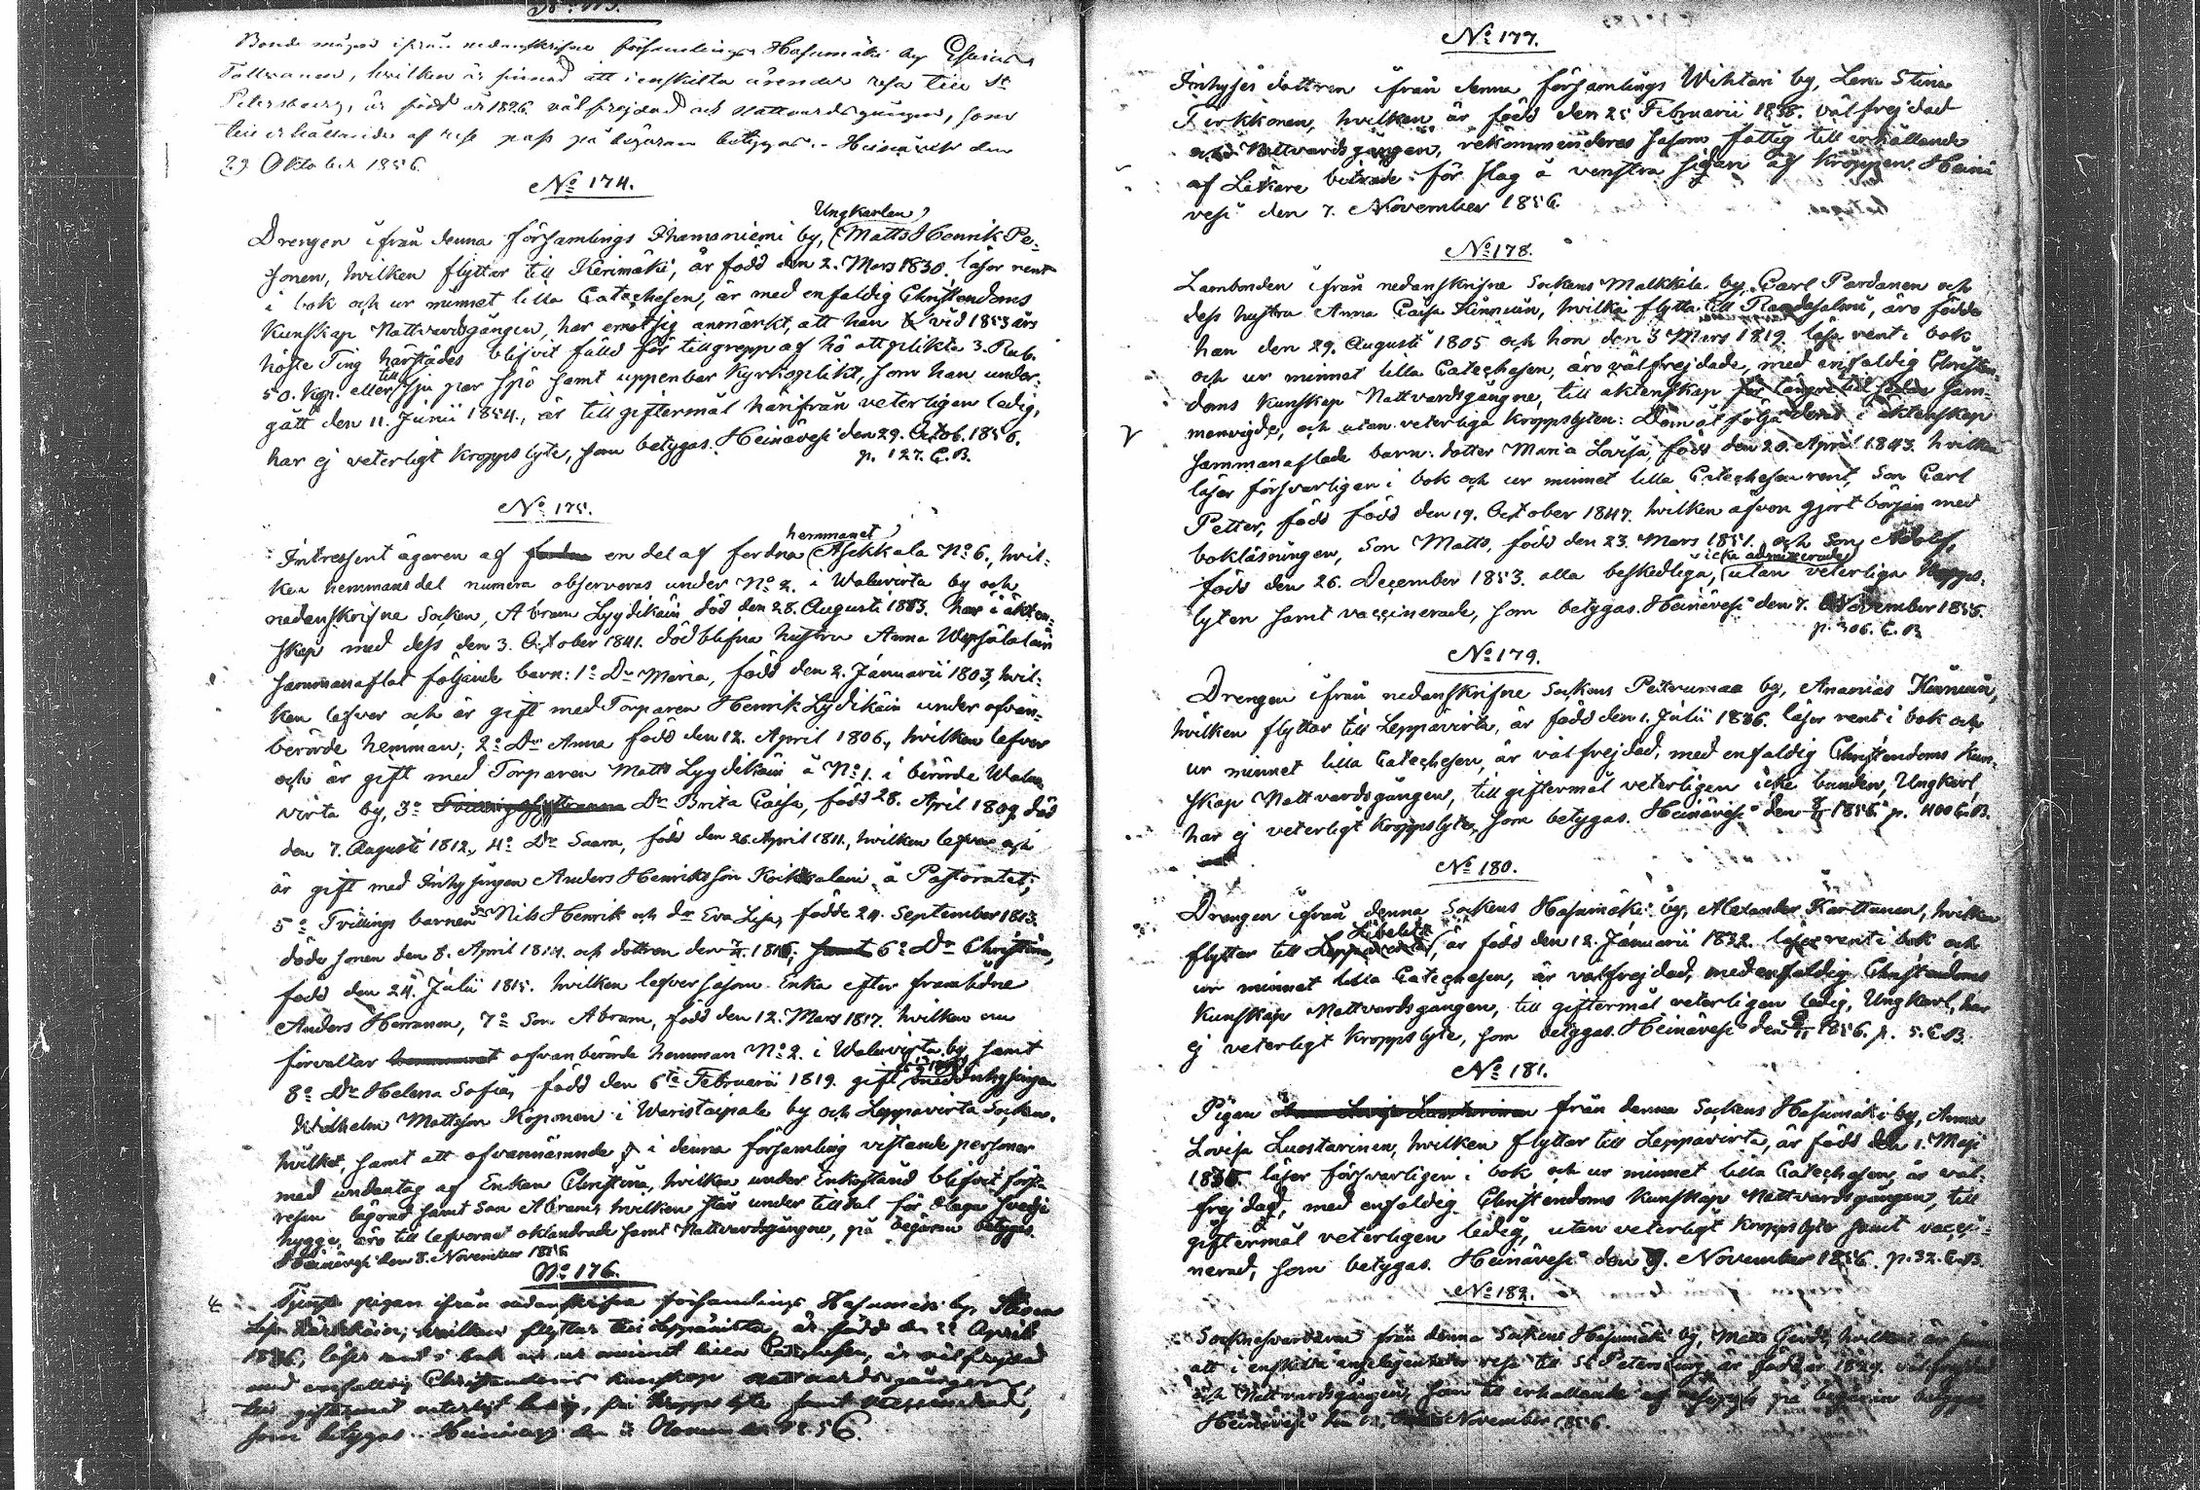 No 173.
Bonde mågen ifrån nedanskrifne församlings Hasumäki by
Tollvanen, hvilken är sinnad att i enskilta ärender resa till St
Petersburg, är född år 1826. välfrejdad och Nattvardsgången, som
till erhållande af rese pass på begäran betygas. Heinävesi den
29 October 1856.
No 174.
Ungkarlen
Drengen ifrån denna församlings Ihamaniemi by, Matts Henrik Pe-
sonen, hvilken flyttar till Kerimäki, är född den 2. Mars 1830. läser rent
i bok och ur minnet lilla Catechesen, är med enfaldig Christendoms
Kunskap Nattvardsgången, har emot sig anmärkt, att han vid 1853 års
höste Ting härstädes blifvit fälld för tillgrepp af hö att plikta 3. Rub.
50. Kop. eller till sju par spö samt uppenbar Kyrkoplikt, som han under-
gått den 11. Junii 1854., är till giftermål härifrån veterligen ledig,
har ej veterligt Kroppslyte, som betygas. Heinävesi den 29. Octob. 1856.
p. 127. C.B.
No 175.
hemmanet
Intressent ägaren af en del af fordna Asikkala No 6., hvil-
ken hemmansdel numera observeras under No 2. i Walovirta by och
nedanskrifne Socken, Abram Lyydikäin död den 28. Augusti 1853. har i äkten-
skap med dess den 3. October 1841. dödblifna hustru Anna Wepsäläläin
sammanaflat följande barn: 1o Dr Maria, född den 2. Januarii 1803, hvil-
ken lefver och är gift med Torparen Henrik Lydikäin under ofvan-
berörde hemman; 2o Dr Anna född den 12. April 1806., hvilken lefver
och är gift med Torparen Matts Lyydikäin å No 1. i berörde Walo-
virta by, 3o Dr Brita Caisa, född 28. April 1809. död
den 7. Augusti 1812., 4o Dr Saara, född den 26. April 1811., hvilken lefver och
är gift med Inhysingen Anders Henriksson å Pastoratet;
5o Tvillings barnen Sn Nils Henrik och dr Eva Lisa, födde 24. September 1813.
döde sonen den 8. April 1814. och dottren den 1816; 6o Dr Christina,
född den 24. Julii 1815. hvilken lefver såsom Enka efter framlidne
Anders Herranen, 7o Son Abram, född den 12. Mars 1817. hvilken nu
förvaltar ofvanberörde hemman No 2. i Walovirta by samt
8o Dr Helena Sofia, född den 6te Februarii 1819. gift med Inhysingen
Wilhelm Mattsson Koponen i Waristaipale by och Leppävirta Socken.
hvilket, samt att ofvannämnde i denna församling vistande personer
med undantag af Enkan Christina, hvilken under Enkestånd blifvit första
resan lägrad samt Son Abram, hvilken står under tilltal för olaga svedje
hygge, äro till lefvernet oklandrade samt Nattvardsgångne, på begäran betygas.
Heinävesi den 8. November 1856
No 176.
Tjenste pigan ifrån nedanskrifne församlings Hasumäki by,
hvilken flyttar till Leppävirta, är född den April
läser rent i bok och ur minnet lilla Catechesen, är välfrejdad
med enfaldig Christendoms kunskap nattvardsgången,
till giftermål veterligt ledig, Kroppslyte samt vaccinerad,
som betygas. Heinävesi den November 1856.
No 177.
Inhyses dottren ifrån denna församlings Wihtari by, Lena Stina
Tirkkonen, hvilken är född den 25 Februarii 1838. välfrejdad
och Nattvardsgången, rekommenderas såsom fattig till erhållande
af Läkare biträde för slag å venstra sidan af Kroppen. Heinä
vesi den 7. November 1856.
No 178.
Lambonden ifrån nedanskrifne Sockens Malkkila by, Carl Pardanen och
dess hustru Anna Caisa Kinnuin, hvilka flytta till Randasalmi, äro födde
han den 29. Augusti 1805 och hon den 3 Mars 1819. läsa rent i bok
och ur minnet lilla Catechesen, äro välfrejdade, med enfaldig Christen-
doms Kunskap Nattvardsgångne, till äktenskap sam-
manvigde, och utan veterliga Kroppslyten: Dem åtfölja deras i äktenskap
sammanaflade barn: dotter Maria Lovisa, född den 20. April 1843. hvilken
läser försvarligen i bok och ur minnet lilla Catechesen rent, Son Carl
Petter, född född den 19. October 1847. hvilken äfven gjort början med
bokläsningen, Son Matts, född den 23. Mars 1851. och Son Adolf,
icke admitterade
född den 26. December 1853. alla beskedliga, utan veterliga Kropps-
lyten samt vaccinerade, som betygas. Heinävesi den 7. November 1856.
p. 306. C.B.
No 179.
Drengen ifrån nedanskrifne Sockens Petrumaa by, Ananias Kinnuin,
hvilken flyttar till Leppävirta, är född den 1. Julii 1836. läser rent i bok och
ur minnet lilla Catechesen, är välfrejdad, med enfaldig Christendoms Kun-
skap Nattvardsgången, till giftermål veterligen icke bunden, Ungkarl,
har ej veterligt Kroppslyte, som betygas. Heinävesi den 1856 p. 400 C.B.
No 180.
Drengen ifrån denna Sockens Hasumäki by, Alexander Karttunen, hvilken
Libelits
flyttar till Leppävirta, är född den 12. Januarii 1832. läser rent i bok och
ur minnet lilla Catechesen, är välfrejdad, med enfaldig Christendoms
Kunskap Nattvardsgången, till giftermål veterligen ledig, Ungkarl, har
ej veterligt Kroppslyte, som betygas. Heinävesi den 1856. p. 5. C.B.
No 181.
Pigan från denna Sockens Hasumäki by, Anna
Lovisa Luostarinen, hvilken flyttar till Leppävirta, är född den 1. Maji
läser försvarligen i bok och ur minnet lilla Catechesen, är väl-
frejdad, med enfaldig Christendoms Kunskap Nattvardsgången, till
giftermål veterligen ledig, utan veterligt Kroppslyte samt vacci-
nerad, som betygas. Heinävesi den 9. November 1856. p. 32. C.B.
No 182.
Sockneskräddaren från denna Sockens Hasumäki by, Matts hvilken är
att i enskilta angelägenheter resa till St Petersburg är född år 1829. välfrejdad
och Nattvardsgången, som till erhållande af på begäran betygas
Heinävesi den November 1856.